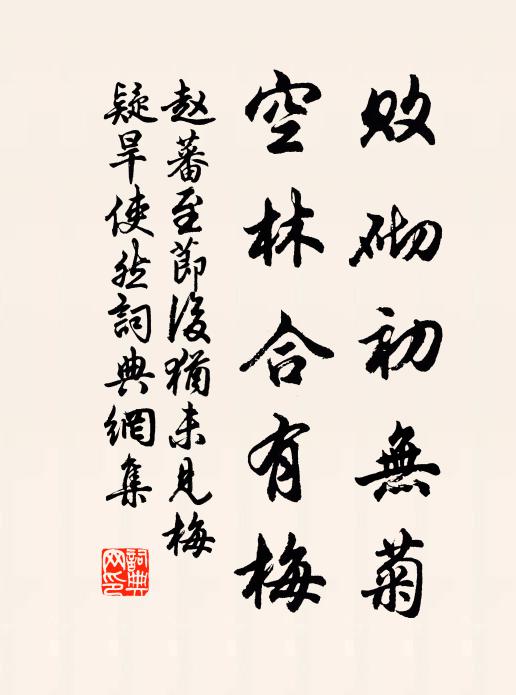 败砌初無菊
空林合有梅
赵蕃至節後猶未見梅
疑旱使然詞典網集
詞典网印